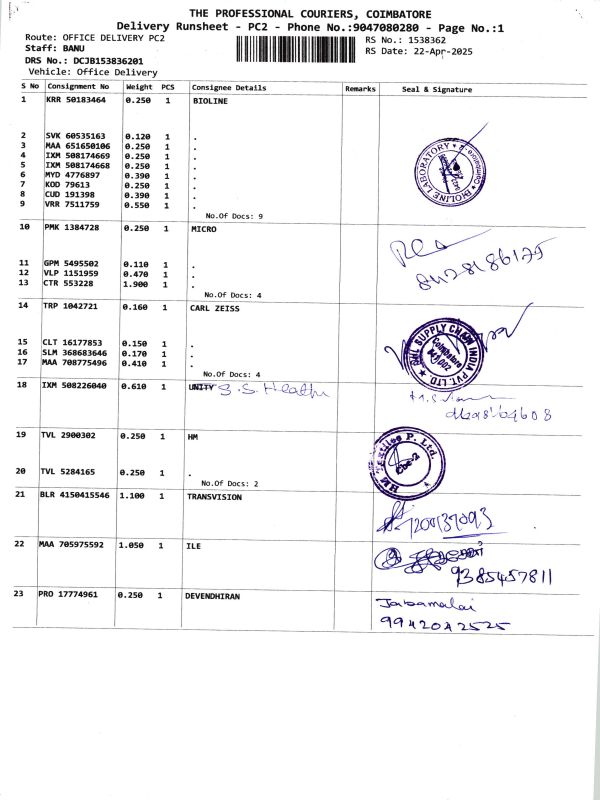 THE PROFESSIONAL COURIERS, COIMBATORE
Delivery Runsheet - PC2 - Phone No.:9047080280 - Page No.:1
Route: OFFICE DELIVERY PC2
RS No.: 1538362
Staff: BANU
RS Date: 22-Apr-2025
DRS No.: DCJB153836201
Vehicle: Office Delivery
S No Consignment No Weight PCS Consignee Details Remarks Seal & Signature
1 KRR 50183464 0.250 1 BIOLINE
2 SVK 60535163 0.120 1 .
3 MAA 651650106 0.250 1 .
4 IXM 508174669 0.250 1 .
5 IXM 508174668 0.250 1 .
6 MYD 4776897 0.390 1 .
7 KOD 79613 0.250 1 .
8 CUD 191398 0.390 1 .
9 VRR 7511759 0.550 1 .
BIOLINE LABORATORY
No.Of Docs: 9
10 PMK 1384728 0.250 1 MICRO
11 GPM 5495502 0.110 1 .
12 VLP 1151959 0.470 1 .
13 CTR 553228 1.900 1 .
No.Of Docs: 4
14 TRP 1042721 0.160 1 CARL ZEISS
15 CLT 16177853 0.150 1 .
16 SLM 368683646 0.170 1 .
17 MAA 708775496 0.410 1 .
SUPPLY CHAIN INDIA PVT. LTD.
Coimbatore
No.Of Docs: 4
18 IXM 508226040 0.610 1 UNITY S.S. Health
19 TVL 2900302 0.250 1 HM
20 TVL 5284165 0.250 1 .
HM Textiles P. Ltd.
Cbe-2
No.Of Docs: 2
21 BLR 4150415546 1.100 1 TRANSVISION
22 MAA 705975592 1.050 1 ILE
9385457811
23 PRO 17774961 0.250 1 DEVENDHIRAN
Jabamalai
9942042525